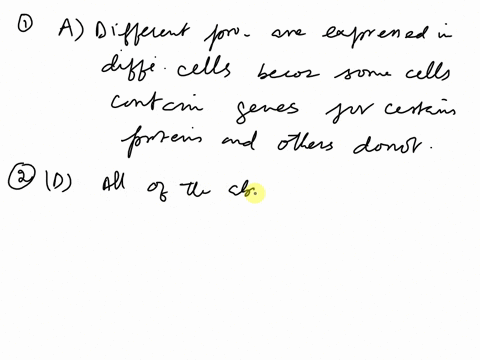 ① A) Different pro. are expressed in
diffe. cells becoz some cells
contain genes for certain
proteins and others donot.
② (D) All of the ab.